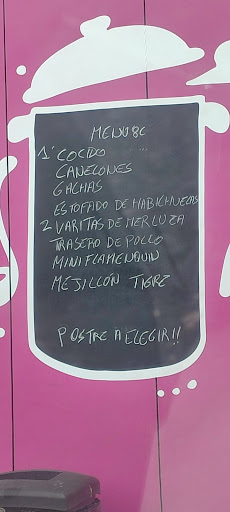 MENU 8€
1º COCIDO
CANELONES
GACHAS
ESTOFADO DE HABICHUELAS
2 VARITAS DE MERLUZA
TRASERO DE POLLO
MINI FLAMENQUIN
MEJILLÓN TIGRE
POSTRE A ELEGIR!!